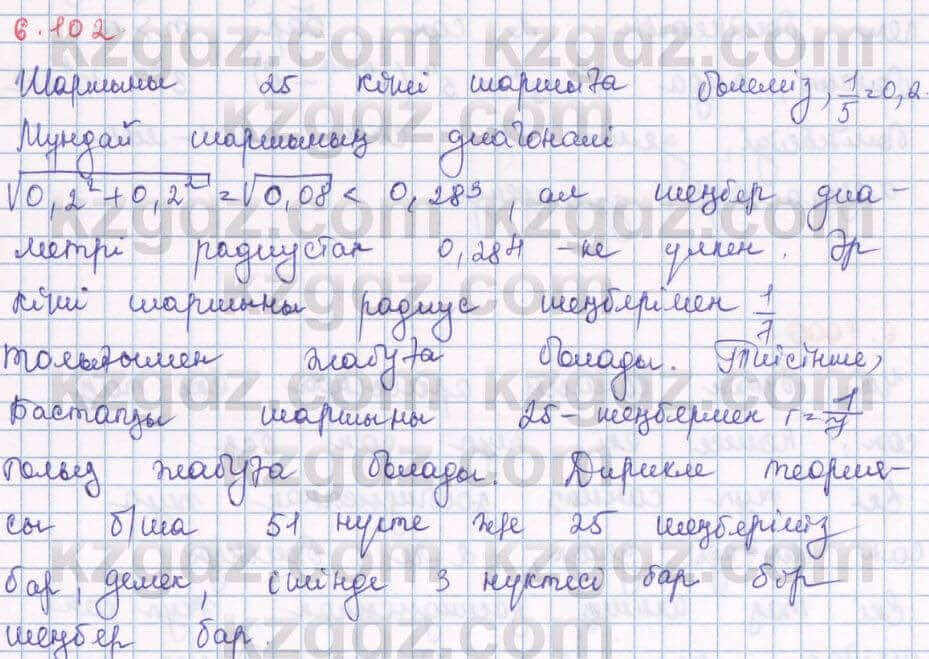 6.102
Шаршыны 25 кіші шаршыға бөлеміз, 1/5=0,2.
Мұндай шаршының диагоналі
√0,2²+0,2² = √0,08 < 0,283, ал шеңбер диа-
метрі радиустан 0,284 -ке үлкен. Әр
кіші шаршыны радиус шеңберімен 1/7
толығымен жабуға болады. Тиісінше,
Бастапқы шаршыны 25-шеңбермен r=1/7
толық жабуға болады. Дирихле теория-
сы б/ша 51 нүкте ж/е 25 шеңберіміз
бар, демек, ішінде 3 нүктесі бар бір
шеңбер бар.
kzgdz.com